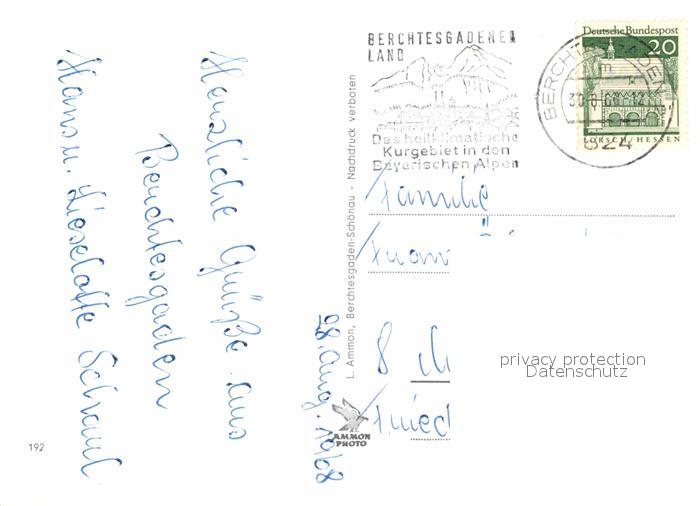 Herzliche Grüße aus
Berchtesgaden
Hans u. Lieselotte
28. Aug. 1968
192
L. Ammon, Berchtesgaden-Schönau - Nachdruck verboten
AMMON
PHOTO
BERCHTESGADENER
LAND
Das heilklimatische
Kurgebiet in den
Bayerischen Alpen
Deutsche Bundespost
20
LORSCH/HESSEN
824
Familie
8
privacy protection
Datenschutz